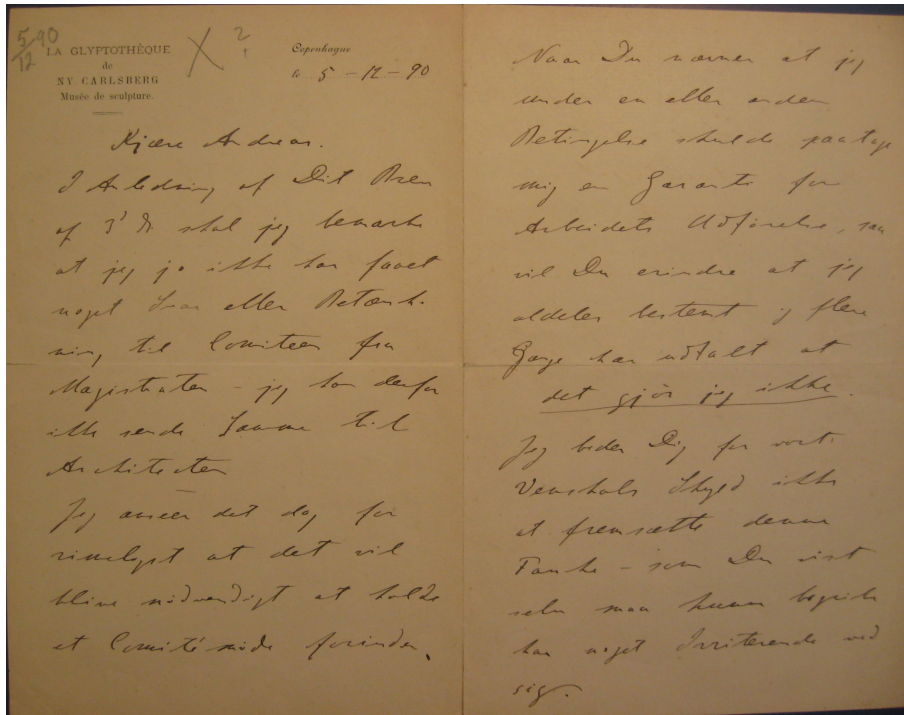 5/12 90
LA GLYPTOTHÈQUE
de
NY CARLSBERG
Musée de sculpture.
X ?
Copenhague
le 5 – 12 – 90
Kjære Andreas.
I Anledning af Dit Brev
af 3' ds skal jeg bemærke
at jeg jo ikke har faaet
noget Svar eller Betænk-
ning til Comiteen fra
Magistraten – jeg kan derfor
ikke sende Samme til
Architecten
Jeg anseer det dog for
rimeligst at det vil
blive nödvendigt at holde
et Comitémöde forinden.
Naar Du nævner at jeg
under en eller anden
Betingelse skulde paatage
mig en Garanti for
Arbeidets Udförelse, saa
vil Du erindre at jeg
aldeles bestemt og flere
Gange har udtalt at
det gjör jeg ikke.
Jeg beder Dig for vort
Venskabs Skyld ikke
at fremsætte denne
Tanke – som Du vist
selv maa kunne begribe
har noget Irriterende ved
sig.